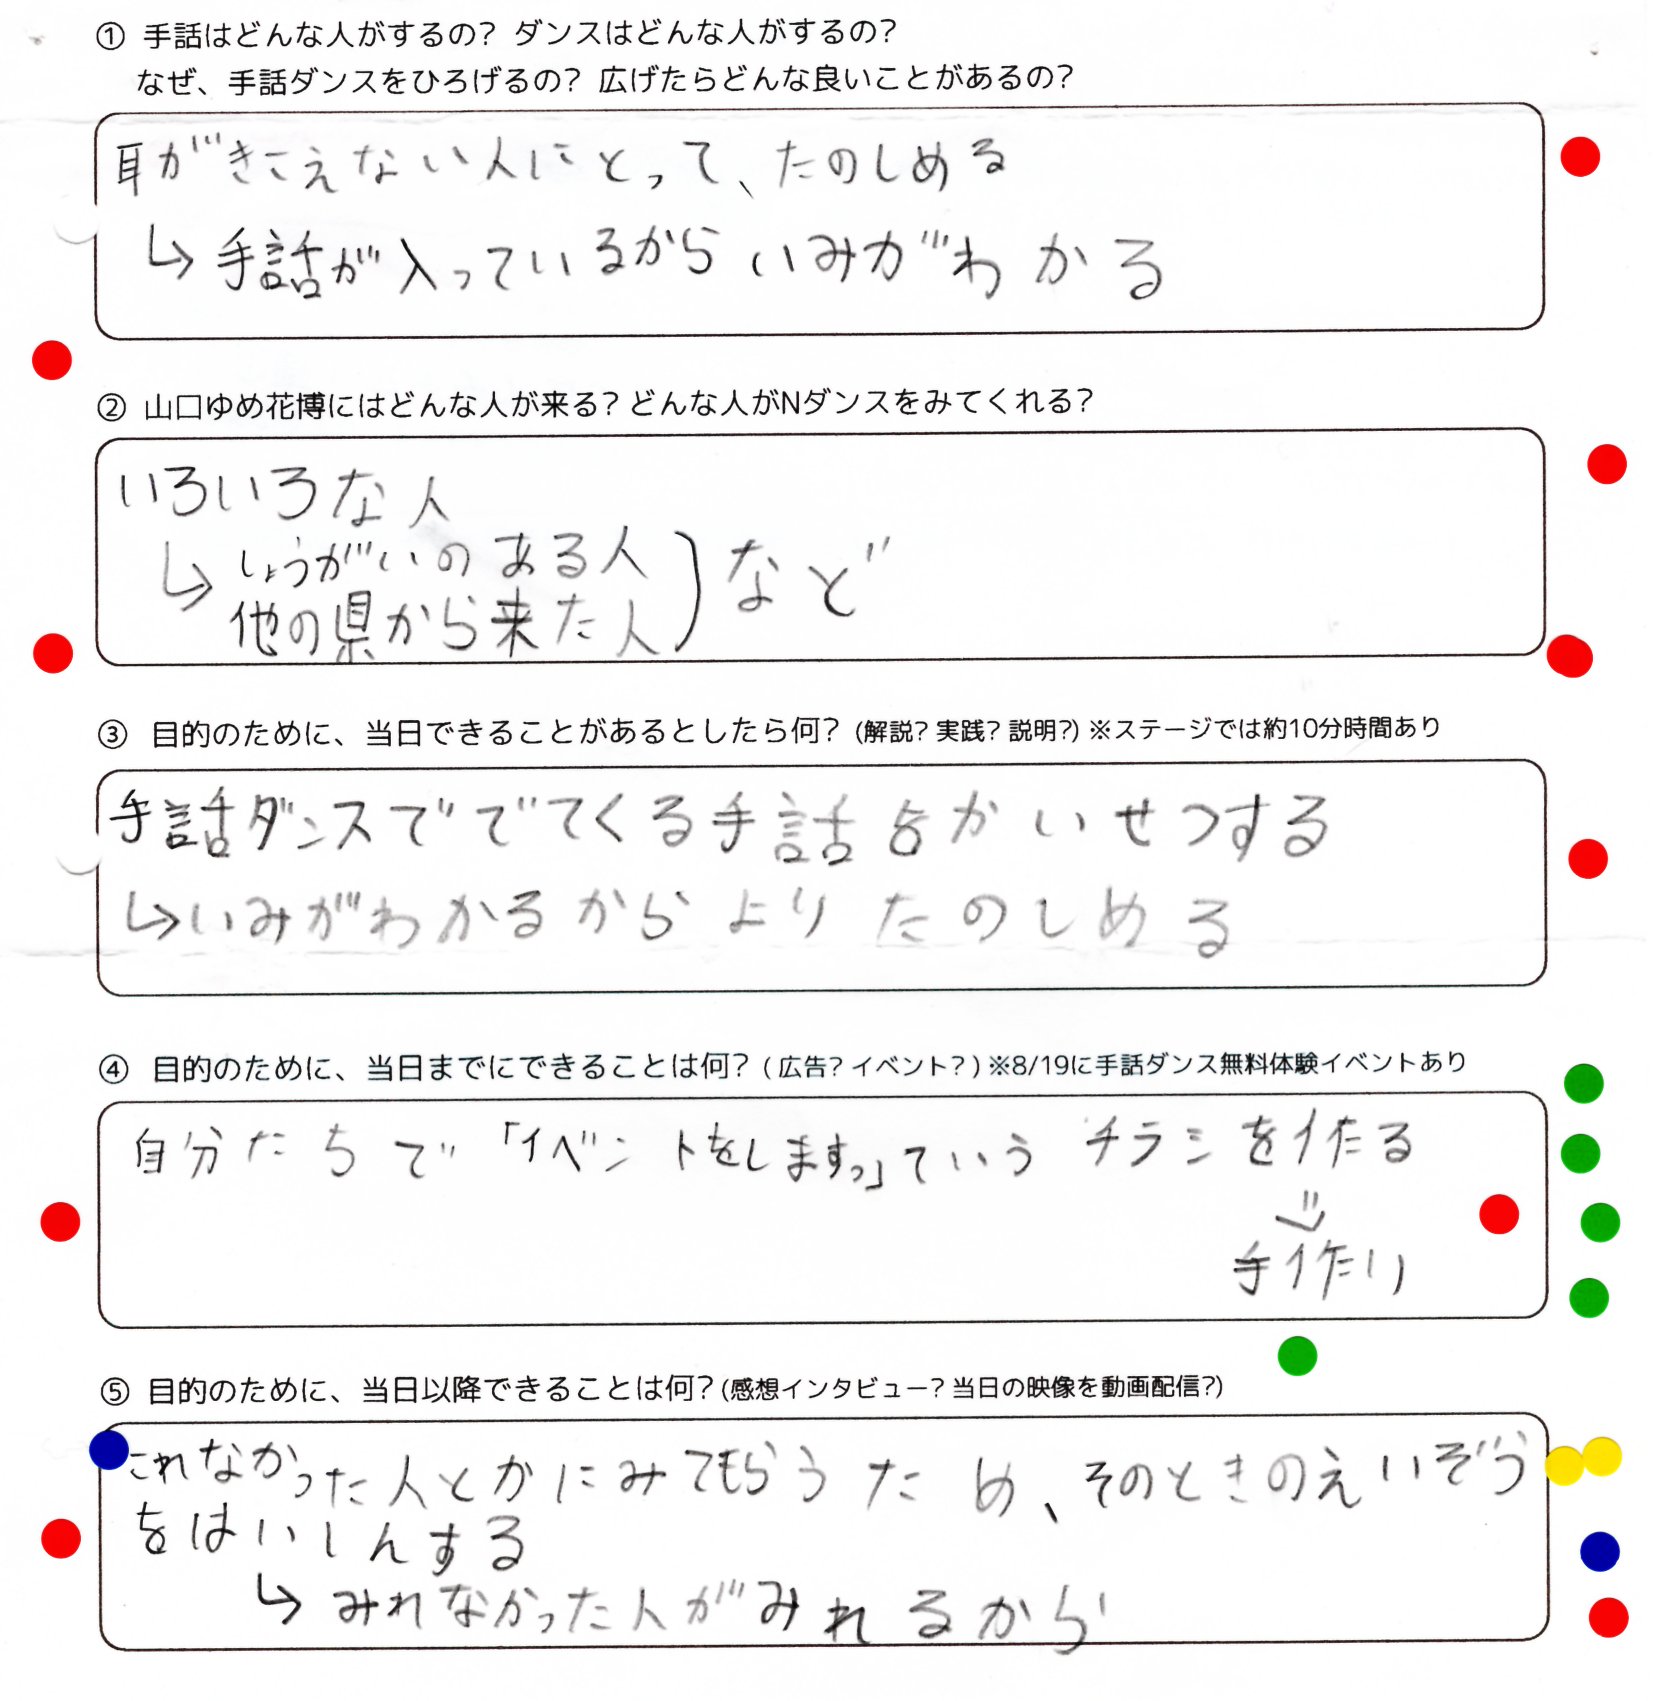 ① 手話はどんな人がするの? ダンスはどんな人がするの?
なぜ、手話ダンスをひろげるの? 広げたらどんな良いことがあるの?
耳がきこえない人にとって、たのしめる
↳ 手話が入っているからいみがわかる
② 山口ゆめ花博にはどんな人が来る? どんな人がNダンスをみてくれる?
いろいろな人
↳ しょうがいのある人
他の県から来た人 ) など
③ 目的のために、当日できることがあるとしたら何? (解説? 実践? 説明?) ※ステージでは約10分時間あり
手話ダンスででてくる手話をかいせつする
↳いみがわかるからよりたのしめる
④ 目的のために、当日までにできることは何? ( 広告? イベント? ) ※8/19に手話ダンス無料体験イベントあり
自分たちで「イベントをしますっ」ていうチラシを作る
⇓
手作り
⑤ 目的のために、当日以降できることは何? (感想インタビュー? 当日の映像を動画配信?)
これなかった人とかにみてもらうため、そのときのえいぞう
をはいしんする
↳ みれなかった人がみれるから